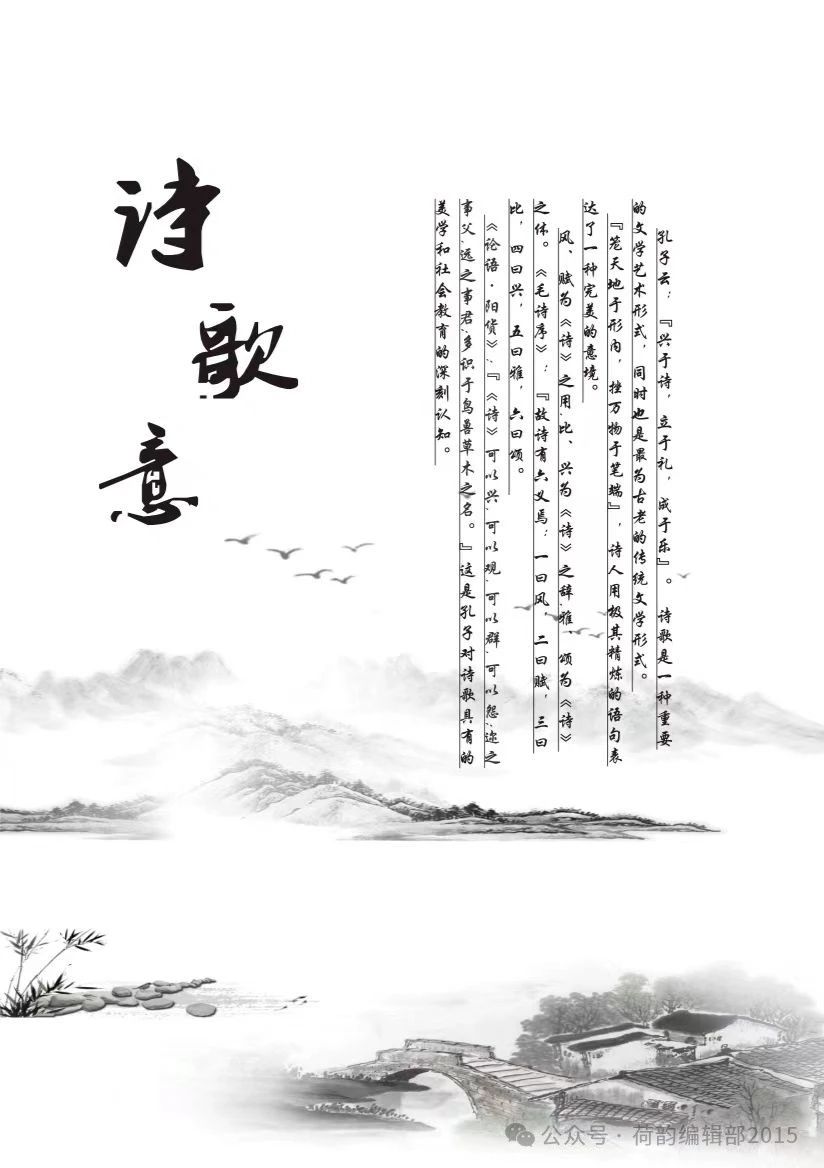 诗歌意
孔子云：『兴于诗，立于礼，成于乐』。诗歌是一种重要
的文学艺术形式，同时也是最为古老的传统文学形式。
『笼天地于形内，挫万物于笔端』，诗人用极其精炼的语句表
达了一种完美的意境。
风、赋为《诗》之用,比、兴为《诗》之辞,雅、颂为《诗》
之体。《毛诗序》：『故诗有六义焉：一曰风，二曰赋，三曰
比，四曰兴，五曰雅，六曰颂。
《论语·阳货》:『《诗》可以兴,可以观,可以群,可以怨,迩之
事父,远之事君,多识于鸟兽草木之名。』这是孔子对诗歌具有的
美学和社会教育的深刻认知。
公众号·荷韵编辑部2015